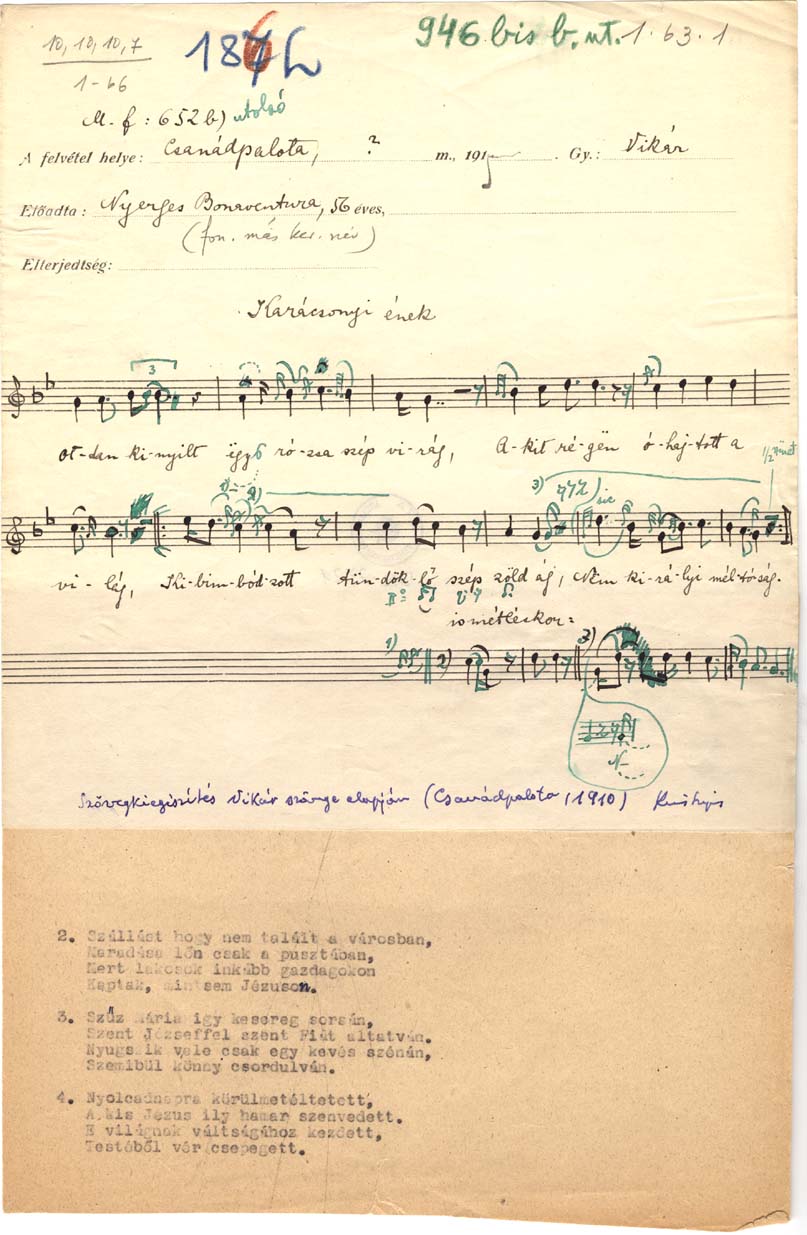 10, 10, 10, 7
1-66
946 bis b. ut. 1.63.1
M. f: 652 b) utolsó
A felvétel helye: Csanádpalota, ? m., 191 . Gy.: Vikár
Előadta: Nyerges Bonaventura, 56 éves,
(fon. más ker. név)
Elterjedtség:
Karácsonyi ének
3
ot-dan ki-nyilt ëgy ró-zsa szép vi-rág, A-kit ré-gën ó-haj-tott a
vi-lág, Ki-bim-bód-zott tün-dök-lő szép zöld ág, Nëm ki-rá-lyi mél-tó-ság.
ismétléskor:
1) 2) 3)
Szövegkiegészítés Vikár szövege alapján (Csanádpalota, 1910)
2. Szállást hogy nem talált a városban,
Maradása lőn csak a pusztában,
Mert lakosok inkább gazdagokon
Kaptak, mintsem Jézuson.
3. Szűz Mária igy kesereg sorsán,
Szent Józseffel szent Fiát altatván.
Nyugszik vele csak egy kevés szénán,
Szemibül könny csordulván.
4. Nyolcadnapra körülmetéltetett,
A kis Jézus ily hamar szenvedett.
E világnak váltságához kezdett,
Testéből vér csepegett.